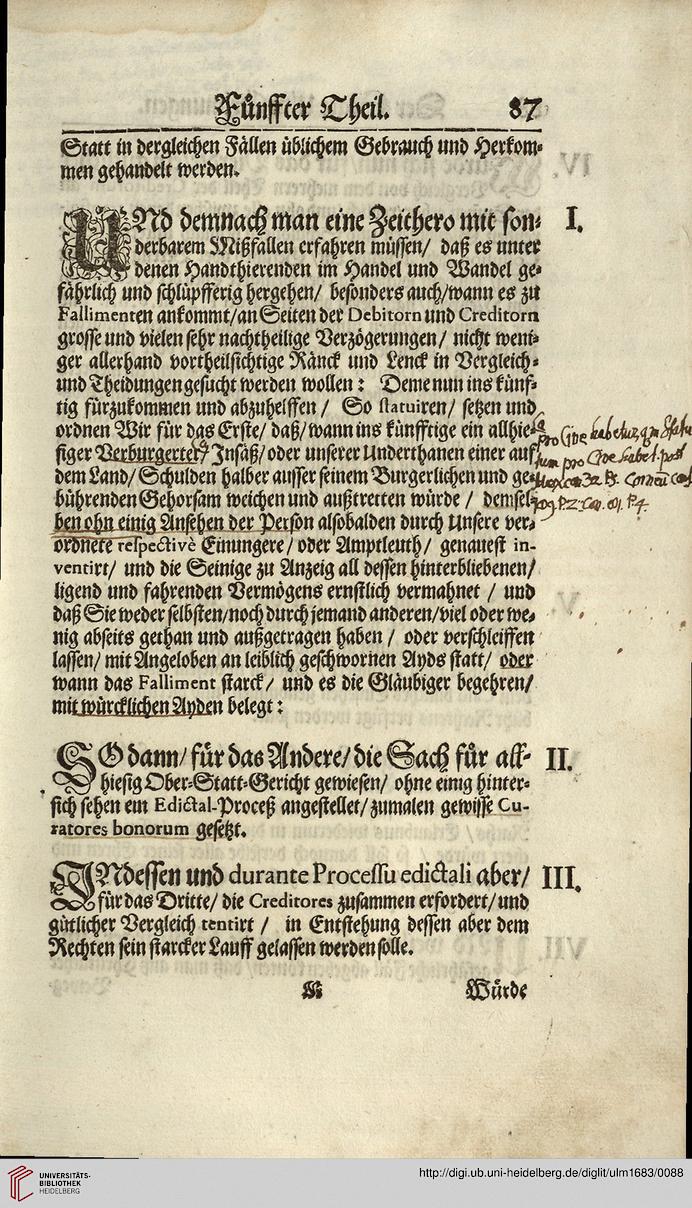 Fünffter Theil. 87
Statt in dergleichen Fällen üblichem Gebrauch und Herkom-
men gehandelt werden.
UNd demnach man eine Zeithero mit son- I.
derbarem Mißfallen erfahren müssen/ daß es unter
denen Handthierenden im Handel und Wandel ge-
fährlich und schlüpfferig hergehen/ besonders auch/wann es zu
Fallimenten ankommt/an Seiten der Debitorn und Creditorn
grosse und vielen sehr nachtheilige Verzögerungen/ nicht weni-
ger allerhand vortheilsichtige Ränck und Lenck in Vergleich-
und Theidungen gesucht werden wollen: Deme nun ins künf-
tig fürzukommen und abzuhelffen/ So statuiren/ setzen und
ordnen Wir für das Erste/ daß/wann ins künfftige ein allhie-
siger Verburgerter/ Insäß/oder unserer Underthanen einer auf
dem Land/ Schulden halber ausser seinem Burgerlichen und ge-
bührenden Gehorsam weichen und außtretten würde/ demsel-
ben ohn einig Ansehen der Person alsobalden durch Unsere ver-
ordnete respectivè Einungere/oder Amptleuth/ genauest in-
ventirt/ und die Seinige zu Anzeig all dessen hinterbliebenen/
ligend und fahrenden Vermögens ernstlich vermahnet/ und
daß Sie weder selbsten/noch durch jemand anderen/viel oder we-
nig abseits gethan und außgetragen haben/ oder verschleiffen
lassen/ mit Angeloben an leiblich geschwornen Ayds statt/ oder
wann das Falliment starck/ und es die Gläubiger begehren/
mit würcklichen Ayden belegt:
SO dann/ für das Andere/die Sach für all- II.
hiesig Ober-Statt-Gericht gewiesen/ ohne einig hinter-
sich sehen ein Edictal-Proceß angestellet/zumalen gewisse Cu-
ratores bonorum gesetzt.
INdessen und durante Processu edictali aber/ III.
für das Dritte/ die Creditores zusammen erfordert/und
gütlicher Vergleich tentirt/ in Entstehung dessen aber dem
Rechten sein starcker Lauff gelassen werden solle.
Würde
pro Cive habetur
pro Cive habet. post
UNIVERSITÄTS-
BIBLIOTHEK
HEIDELBERG
http://digi.ub.uni-heidelberg.de/diglit/ulm1683/0088